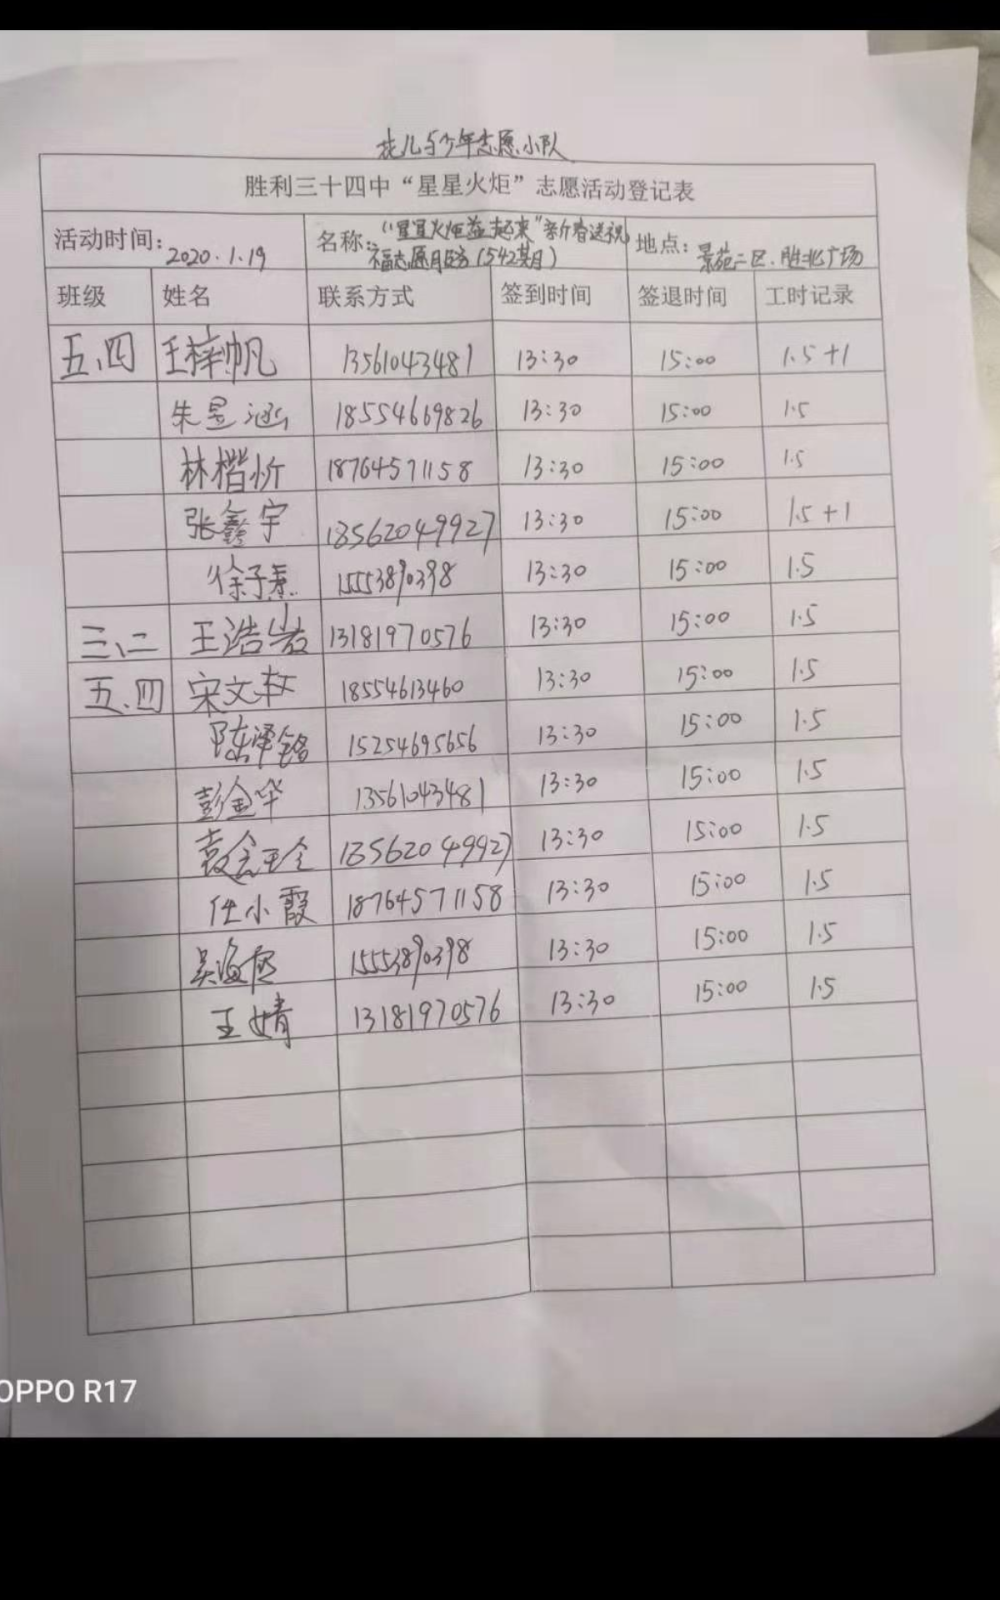 花儿与少年志愿小队
胜利三十四中“星星火炬”志愿活动登记表
活动时间: 2020.1.19 名称: “星星火炬益起来”新春送祝福志愿服务(542期) 地点: 景苑二区.胜北广场
班级 姓名 联系方式 签到时间 签退时间 工时记录
五、四 王梓帆 13561043481 13:30 15:00 1.5+1
朱昱涵 18554669826 13:30 15:00 1.5
林楷忻 18764571158 13:30 15:00 1.5
张鑫宇 18562049927 13:30 15:00 1.5+1
徐子 15553890398 13:30 15:00 1.5
三、二 王浩岩 13181970576 13:30 15:00 1.5
五、四 宋文 18554613460 13:30 15:00 1.5
陈泽铭 15254695656 13:30 15:00 1.5
彭金华 13561043481 13:30 15:00 1.5
袁 18562049927 13:30 15:00 1.5
任小霞 18764571158 13:30 15:00 1.5
吴海燕 15553890398 13:30 15:00 1.5
王婧 13181970576 13:30 15:00 1.5
OPPO R17